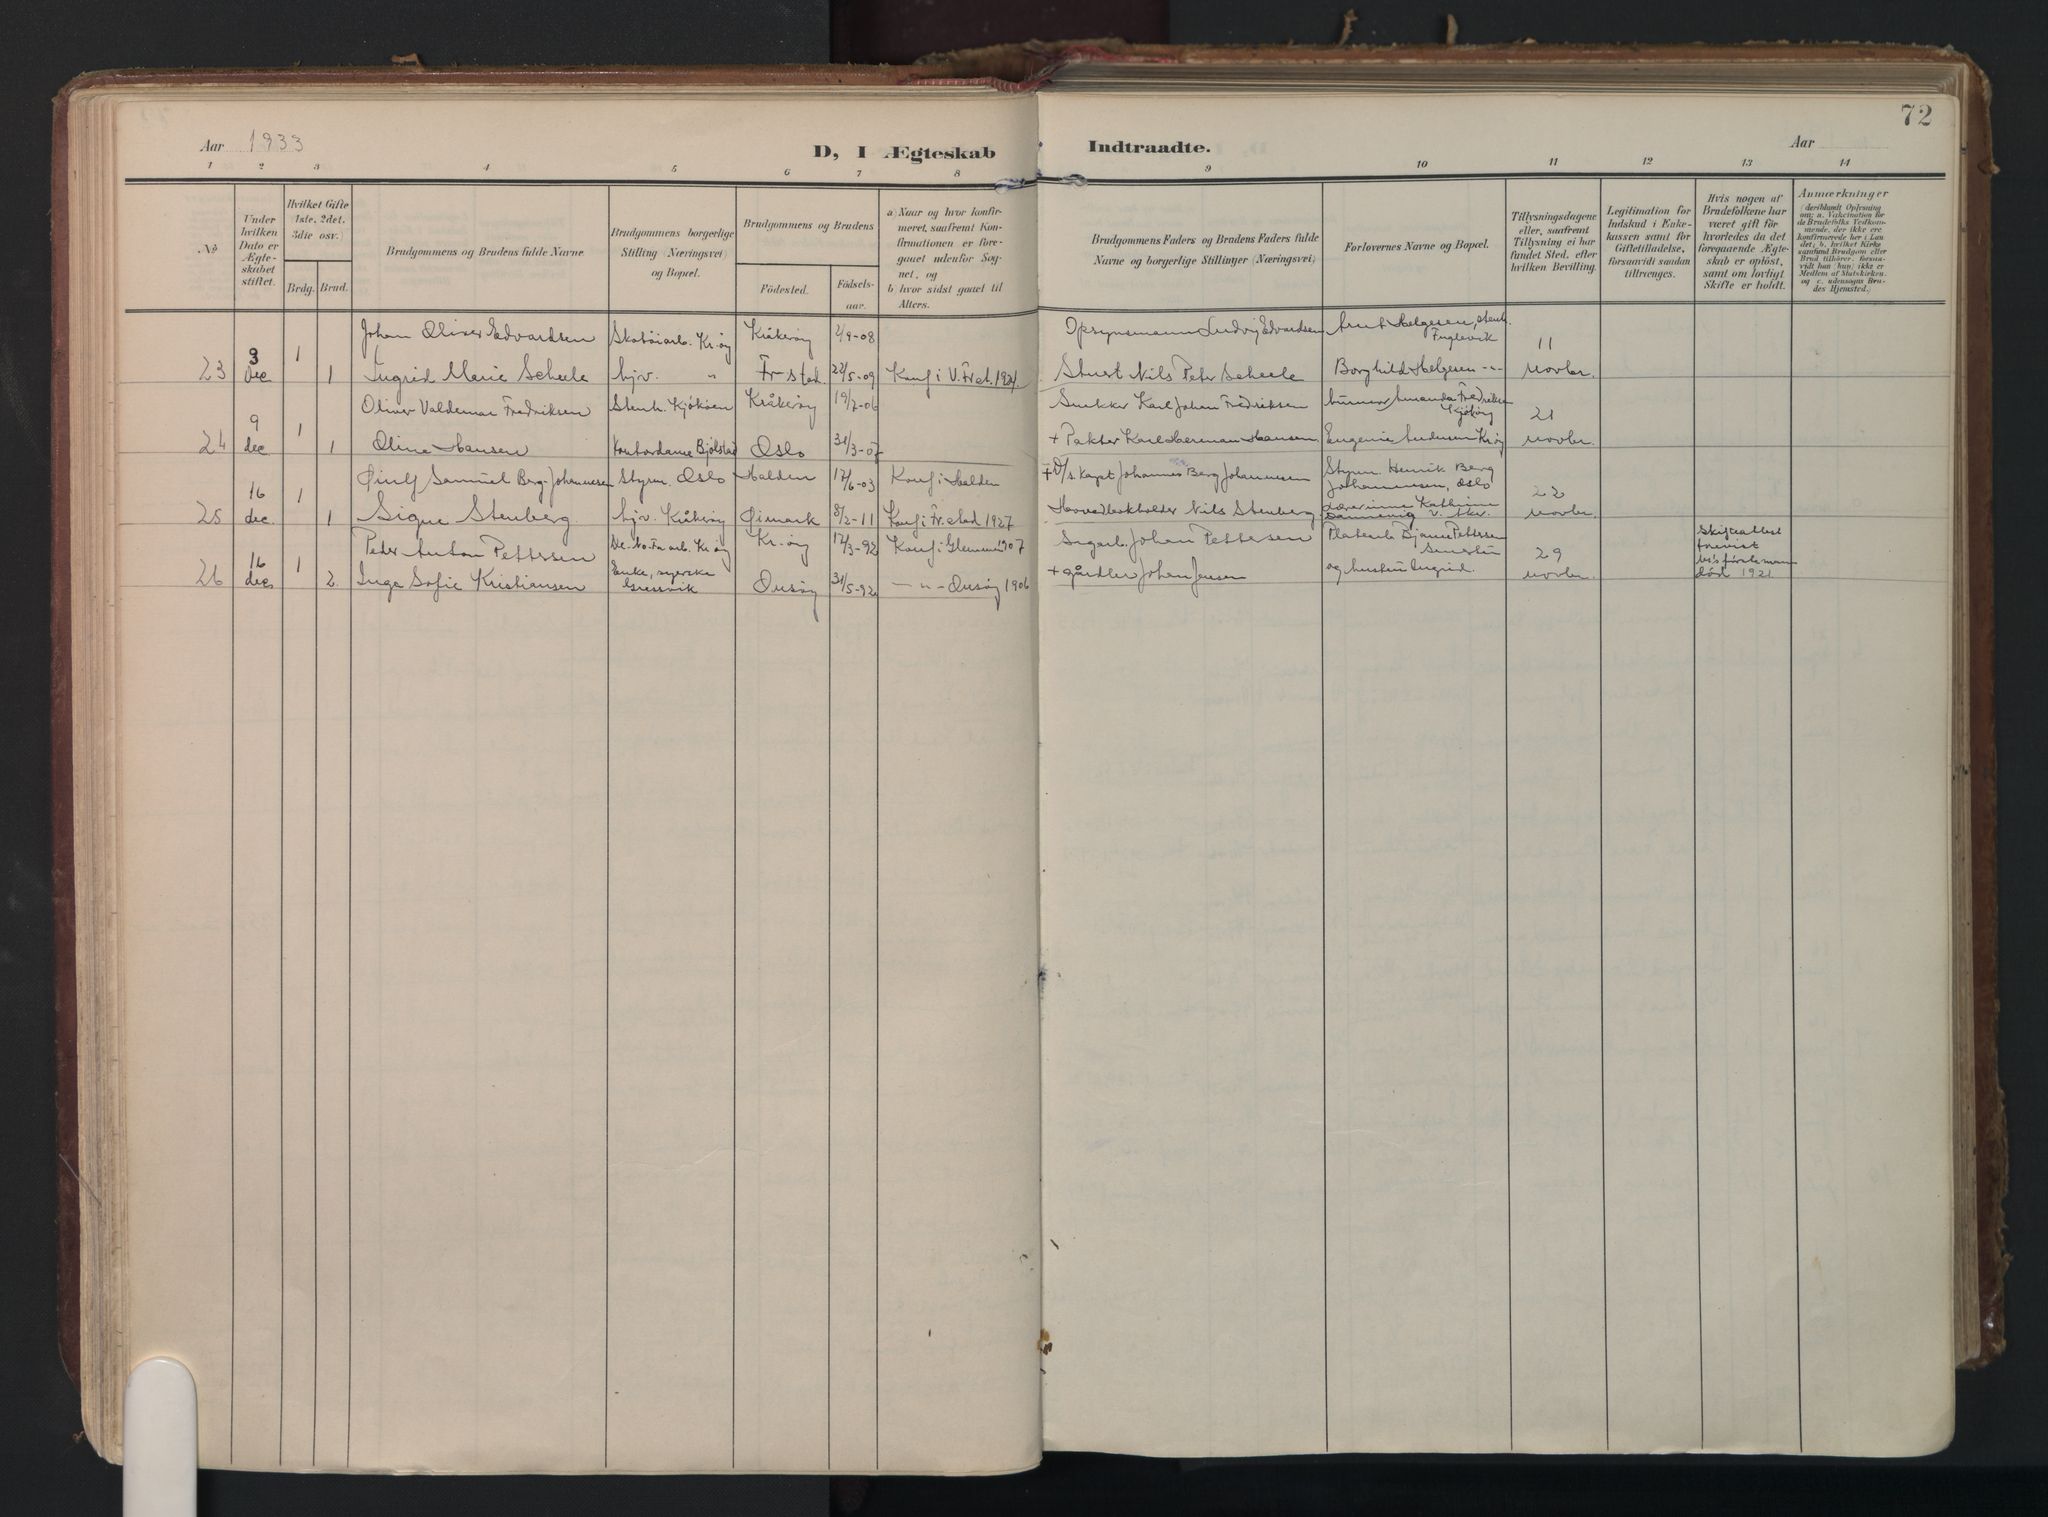 72
Aar 1933
D, I Ægteskab
Indtraadte.
Aar
1 2 3 4 5 6 7 8 9 10 11 12 13 14
No
Under hvilken Dato er Ægteskabet stiftet.
Hvilket Gifte 1ste. 2det. 3die osv.)
Brdg. Brud.
Brudgommens og Brudens fulde Navne
Brudgommens borgerlige Stilling (Næringsvei) og Bopæl.
Brudgommens og Brudens
Födested.
Födselsaar.
a) Naar og hvor konfirmeret, saafremt Konfirmationen er foregaaet udenfor Sognet, og
b) hvor sidst gaaet til Alters.
Brudgommens Faders og Brudens Faders fulde Navne og borgerlige Stillinger (Næringsvei)
Forlovernes Navne og Bopæl.
Tillysningsdagene eller, saafremt Tillysning ei har fundet Sted, efter hvilken Bevilling.
Legitimation for Indskud i Enkekassen samt for Giftetilladelse, forsaavidt saadan tiltrænges.
Hvis nogen af Brudefolkene har været gift för hvorledes da det foregaaende Ægteskab er oplöst, samt om lovligt Skifte er holdt.
Anmærkninger
23 3 dec 1 Johan Oliver Edvardsen Skotöiarb. Kr.öy Kråkeröy 2/9-08 Opsynsmann Ludvig Edvardsen Arnt Helgesen, stenh. Fuglevik 11
1 Ingrid Marie Scheele hjv. " Fr-stad 22/5-09 Konf i V. Fr.st. 1924 Stuert Nils Peter Scheele Borghild Helgesen -"- novbr.
24 9 dec 1 Oliver Valdemar Fredriksen Stenh. Kjököen Kråkeröy 19/7-06 Snekker Karl Johan Fredriksen Amanda Fredriksen Kjököy 21
1 Oline Hansen Kontordame Bjölstad Oslo 31/3-07 + Pakter Karl Herman Hansen Eugenie Andersen Kröy novbr.
25 16 dec. 1 Öiulf Samuel Berg-Johannesen Styrm. Oslo Halden 17/6-03 Konf i Halden + D/s kapt Johannes Berg Johannesen Styrm. Henrik Berg Johannesen, Oslo 22
1 Signe Stenberg. hjv. Kråkeröy Öimark 8/2-11 Konf i Fr.stad 1927 Hovedbokholder Nils Stenberg. Lærerinne Kathrine Dannevig V. Aker. novbr.
26 16 dec 1 Peder Anton Pettersen De-No-Fa arb. Kr.öy Kr.öy 17/3-92 Konf i Glemmen 1907 Sagarb. Johan Pettersen Platearb Bjarne Pettersen 29
2. Inga Sofie Kristiansen Enke, syerske Gressvik Onsöy 31/5-92 -"- Onsöy 1906 + gårdbr Johan Jensen og hustru Ingrid. novbr. Skifteattest forevist død 1921